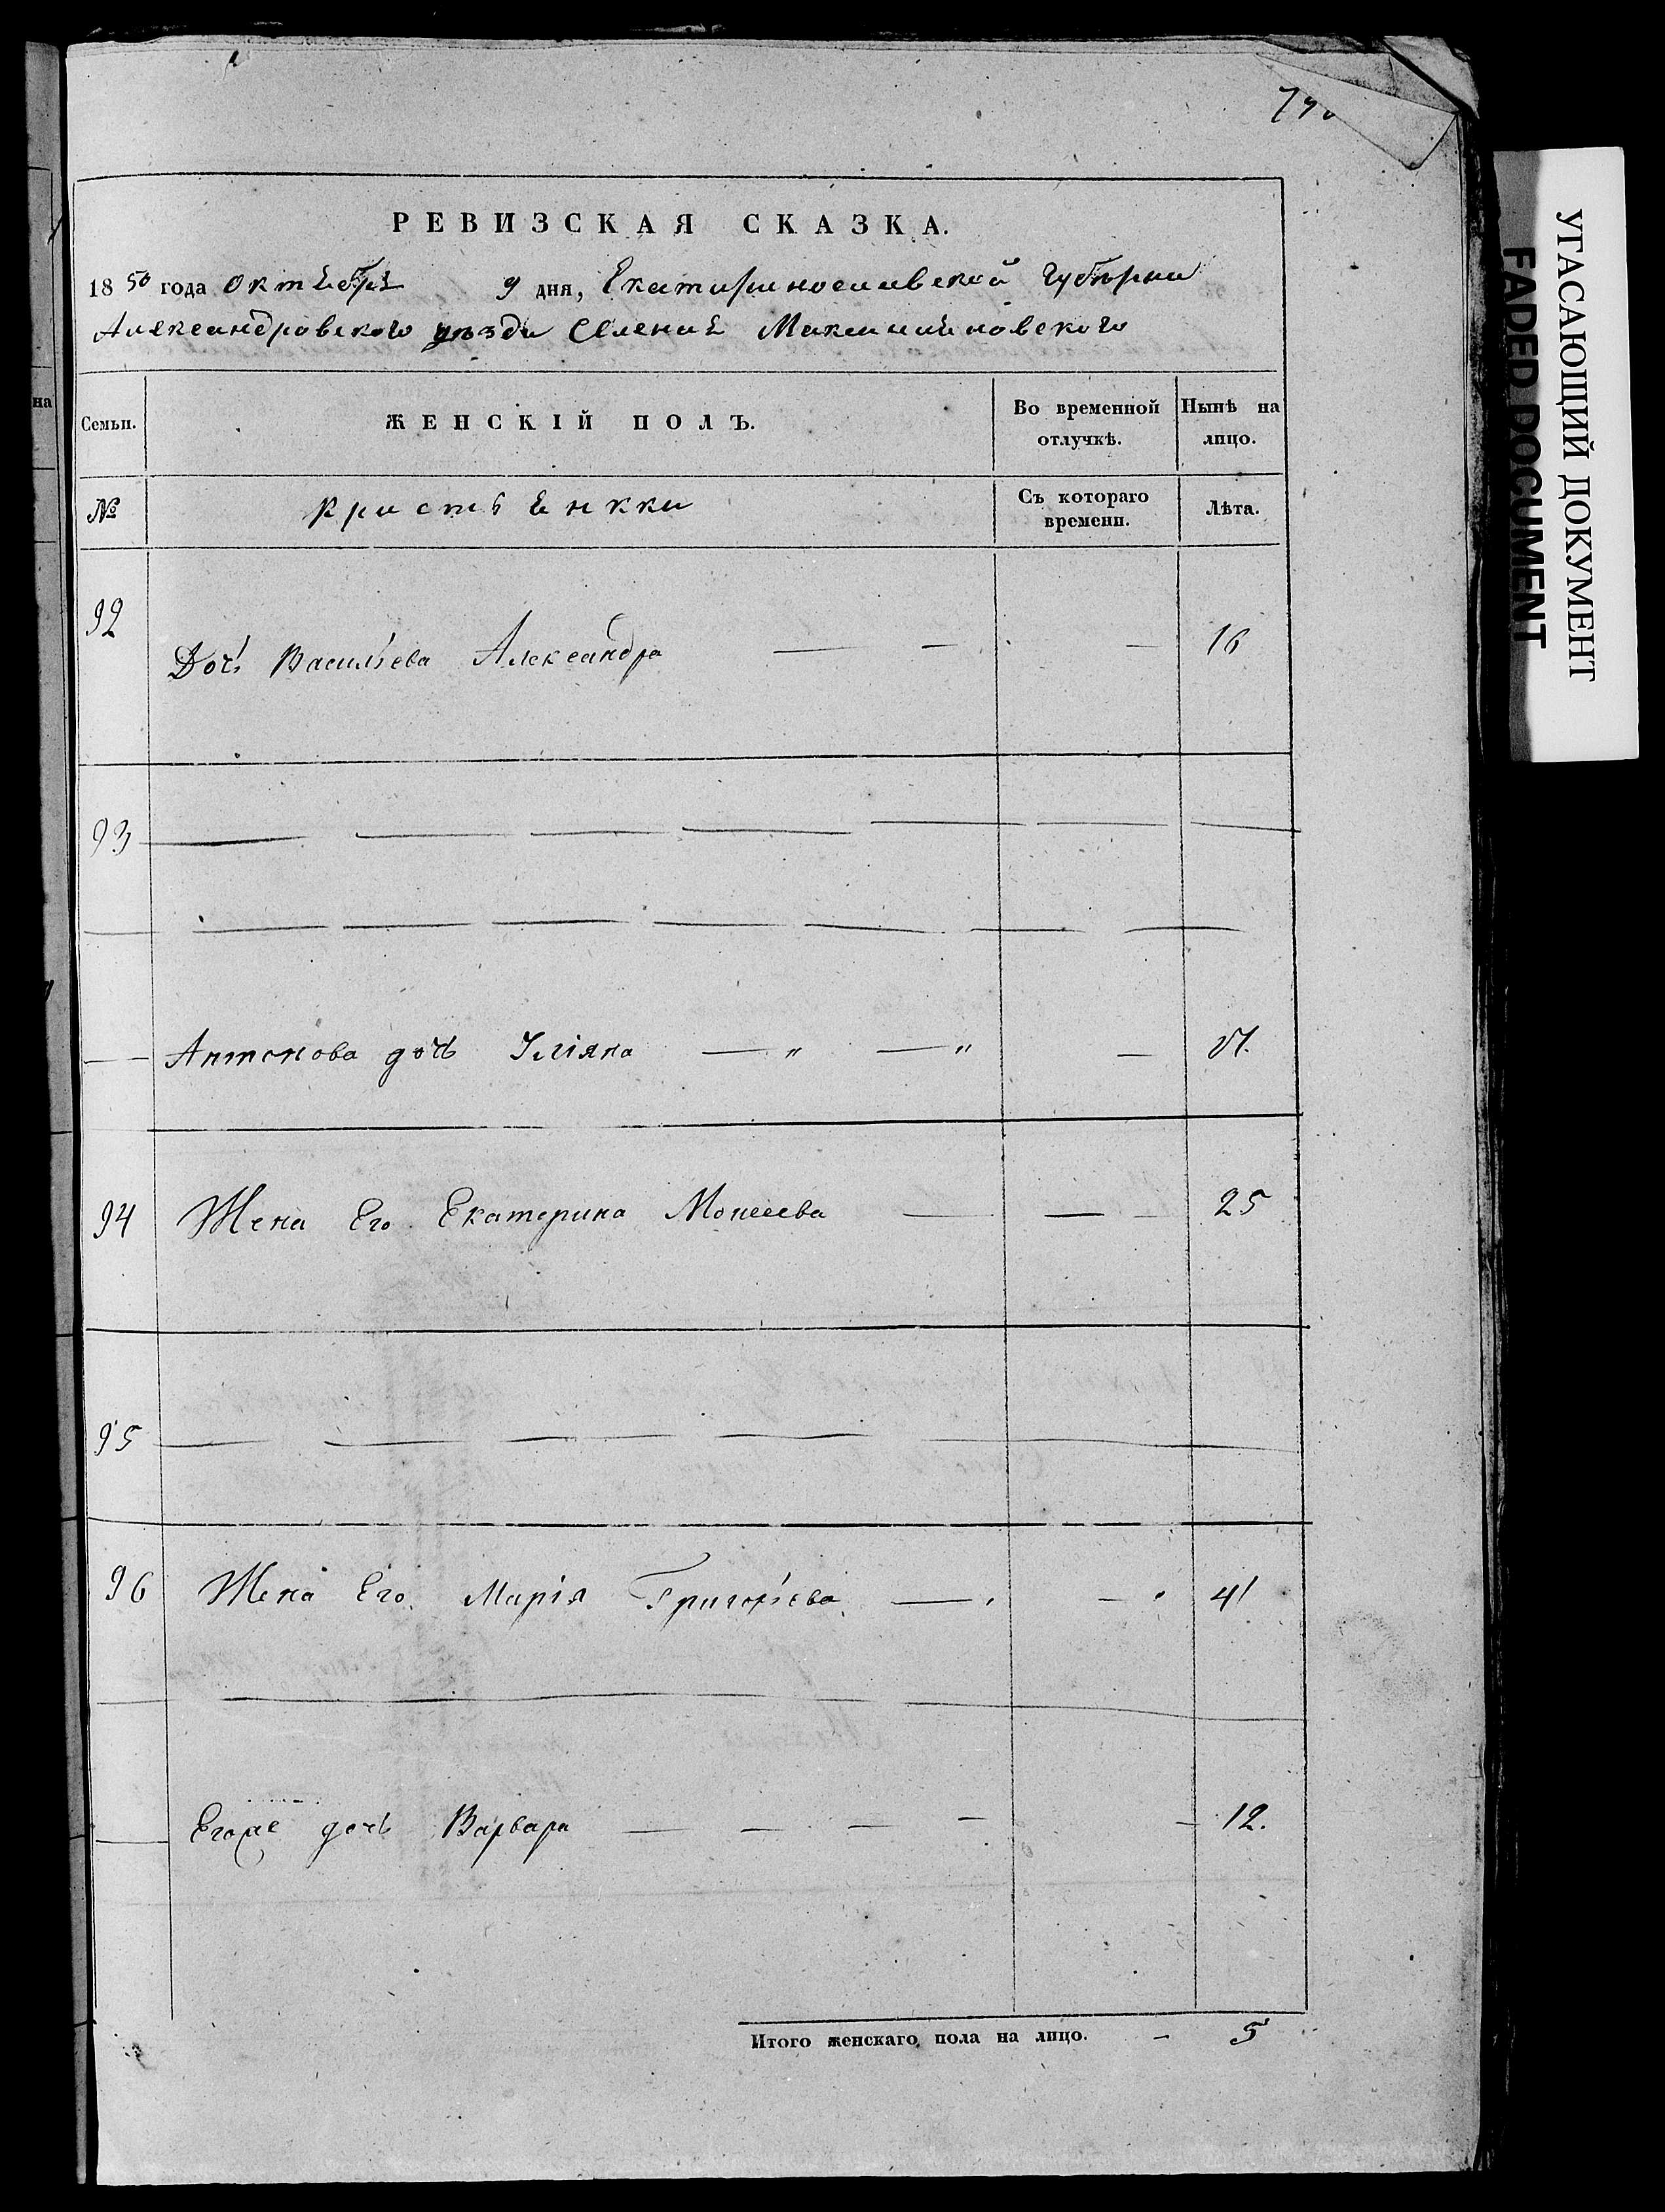 РЕВИЗСКАЯ СКАЗКА.
1850 года Октября 9 дня, Екатеринославской Губернии
Александровского уезда Селения Максимилиановского
Семьи. ЖЕНСКІЙ ПОЛЪ. Во временной отлучкѣ. Нынѣ на лицо.
№ Крестьянки Съ котораго времени. Лѣта.
92 Дочь Васильева Александра — — — 16
93
Антонова дочь Уліяна — " — " —
94 Жена Его Екатерина Моисеева — — — 25
95
96 Жена Его Марія Григорьева — — 41
Егоже дочь Варвара — — — — — 12.
Итого женскаго пола на лицо. — 5
УГАСАЮЩИЙ ДОКУМЕНТ
FADED DOCUMENT
на